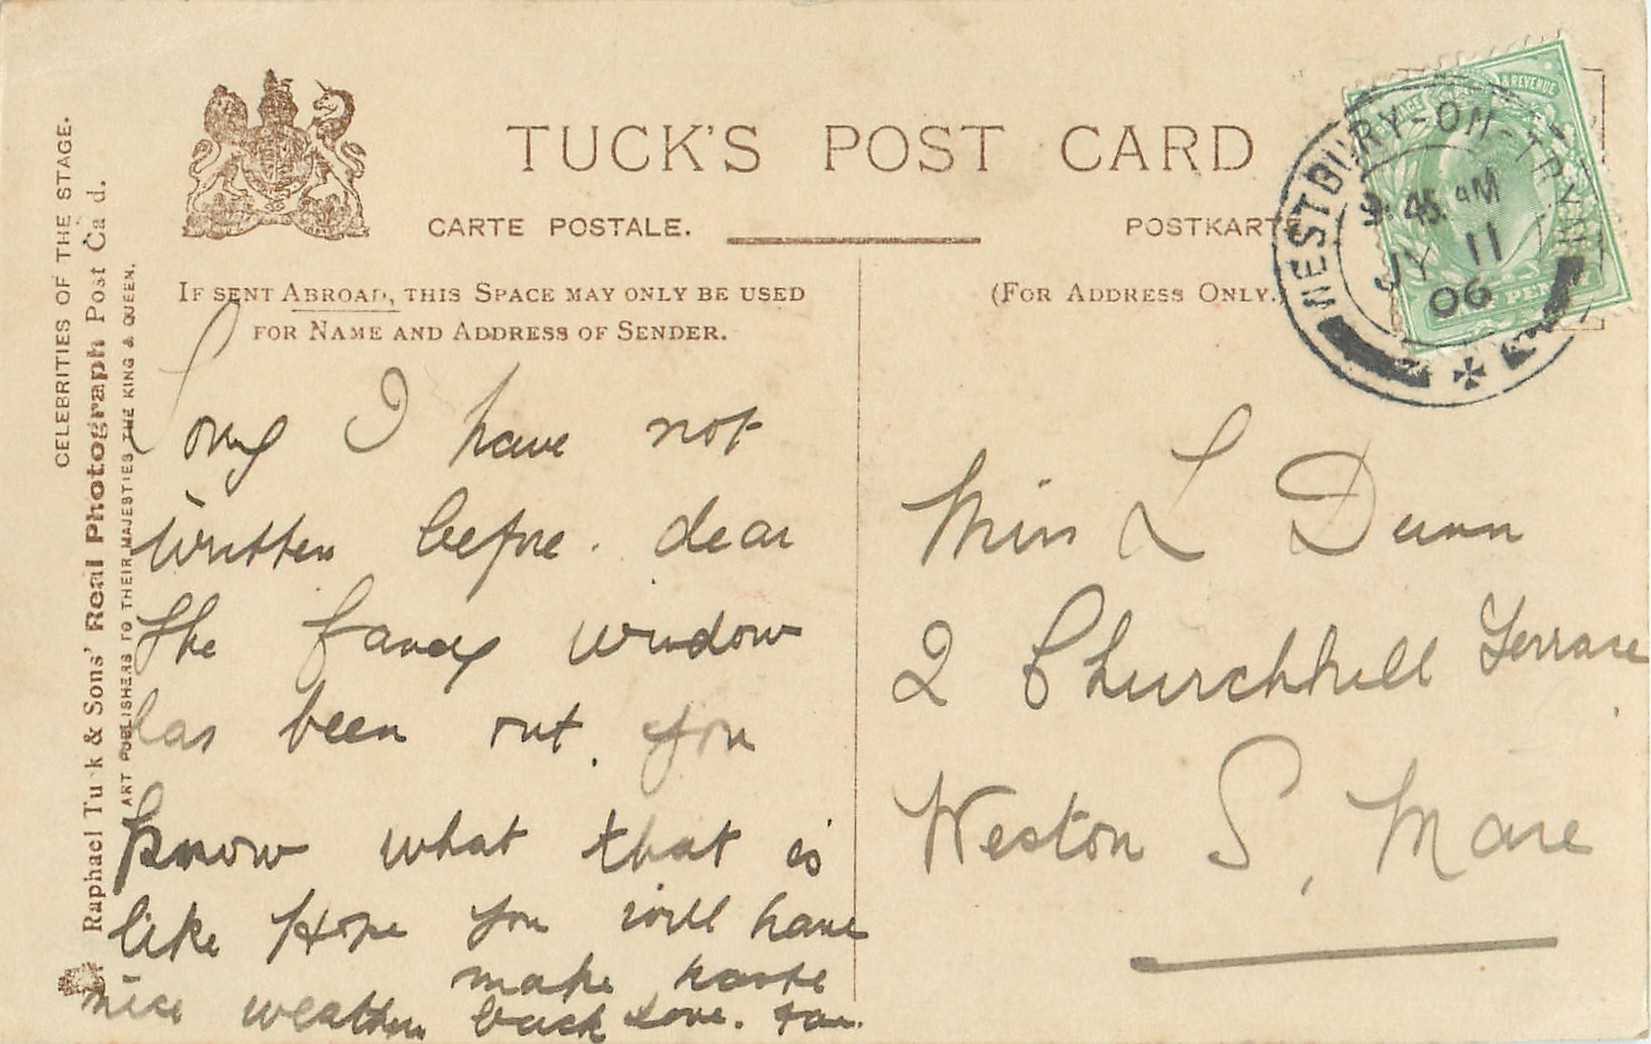 TUCK'S POST CARD
CARTE POSTALE.
POSTKARTE
IF SENT ABROAD, THIS SPACE MAY ONLY BE USED
FOR NAME AND ADDRESS OF SENDER.
(FOR ADDRESS ONLY.)
CELEBRITIES OF THE STAGE.
Raphael Tu k & Sons' Real Photograph Post Ca d.
ART PUBLISHERS TO THEIR MAJESTIES THE KING & QUEEN.
WESTBURY-ON-TRYM
45 AM
JY 11
06
& REVENUE
Sorry I have not
written before. dear
the fancy window
has been out. you
know what that is
like Hope you will have
nice weather
make haste
back Love.
Miss L Dunn
2 Churchhill Terrace
Weston S, Mare